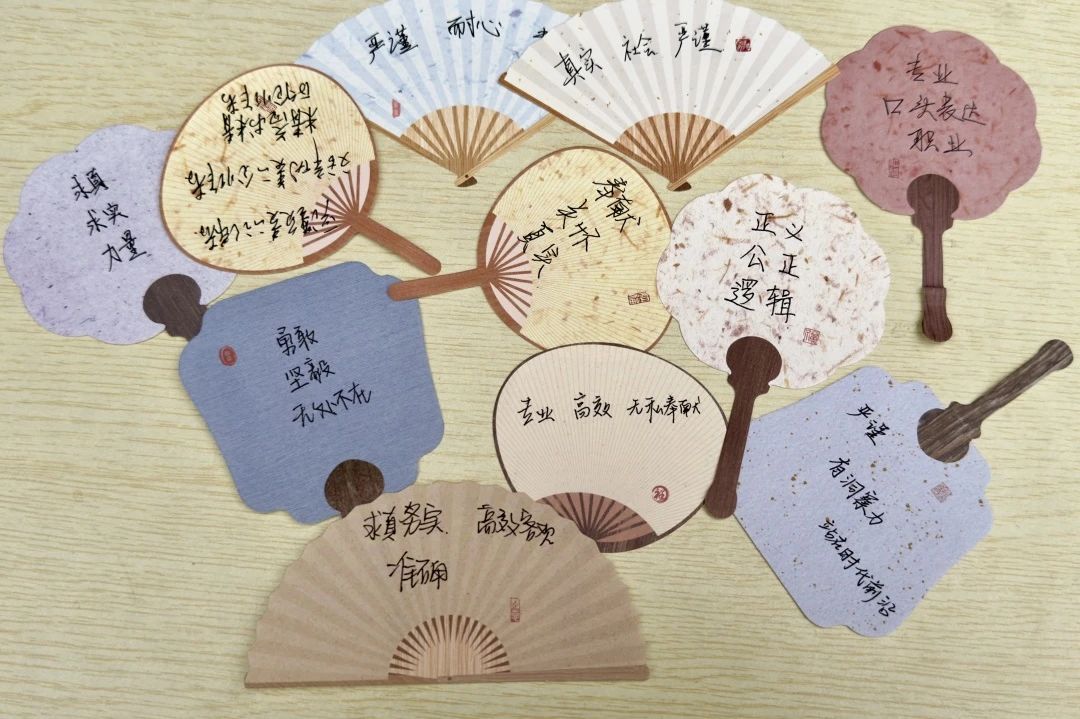 严谨 耐心
真实 社会 严谨
专业
口头表达
职业
求真
求实
力量
奉献
关怀
真实
正义
公正
逻辑
勇敢
坚毅
无处不在
专业 高效 无私奉献
严谨
有洞察力
站在时代前沿
求真务实 高效客观
准确